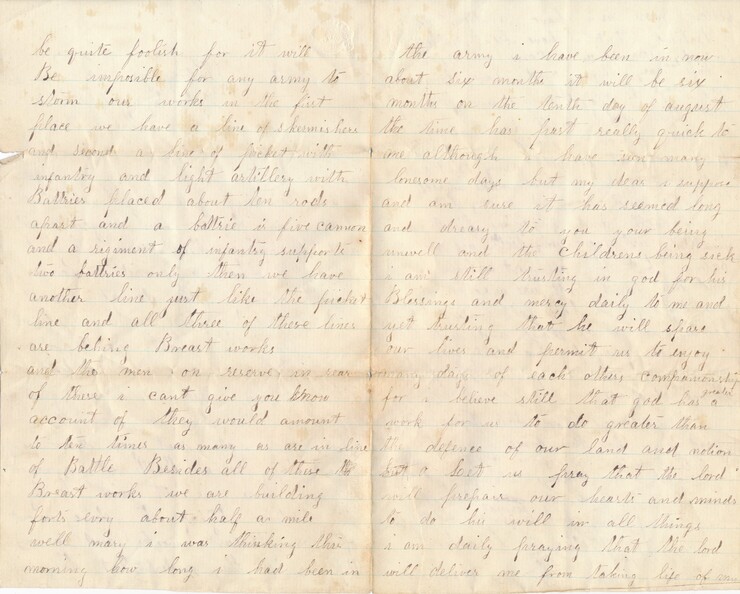 be quite foolish for it will
Be imposible for any army to
storm our works in the first
place we have a line of skermishers
and second a line of picket with
infantry and light artillery with
Battries placed about ten rods
apart and a battrie is five cannon
and a rigiment of infantry supports
two battries only then we have
another line just like the picket
line and all three of these lines
are behing Breast works
and the men on reserve in rear
of these i cant give you know
account of they would amount
to ten times as many as are in line
of Battle Besides all of these the
Breast works we are building
forts evry about half a mile
well mary i was thinking this
morning how long i had been in
the army i have been in now
about six months it will be six
months on the tenth day of august
the time has past really quick to
me although i have seen many
lonesome days but my dear i suppose
and am sure it has seemed long
and dreary to you your being
unwell and the childrens being sick
i am still trusting in god for his
Blessings and mercy daily to me and
yet trusting that he will spare
our lives and permit us to enjoy
many days of each others companionship
for i believe still that god has a greater
work for us to do greater than
the defence of our land and nation
but a let us pray that the lord
will prepare our hearts and minds
to do his will in all things
i am daily praying that the lord
will deliver me from taking life of